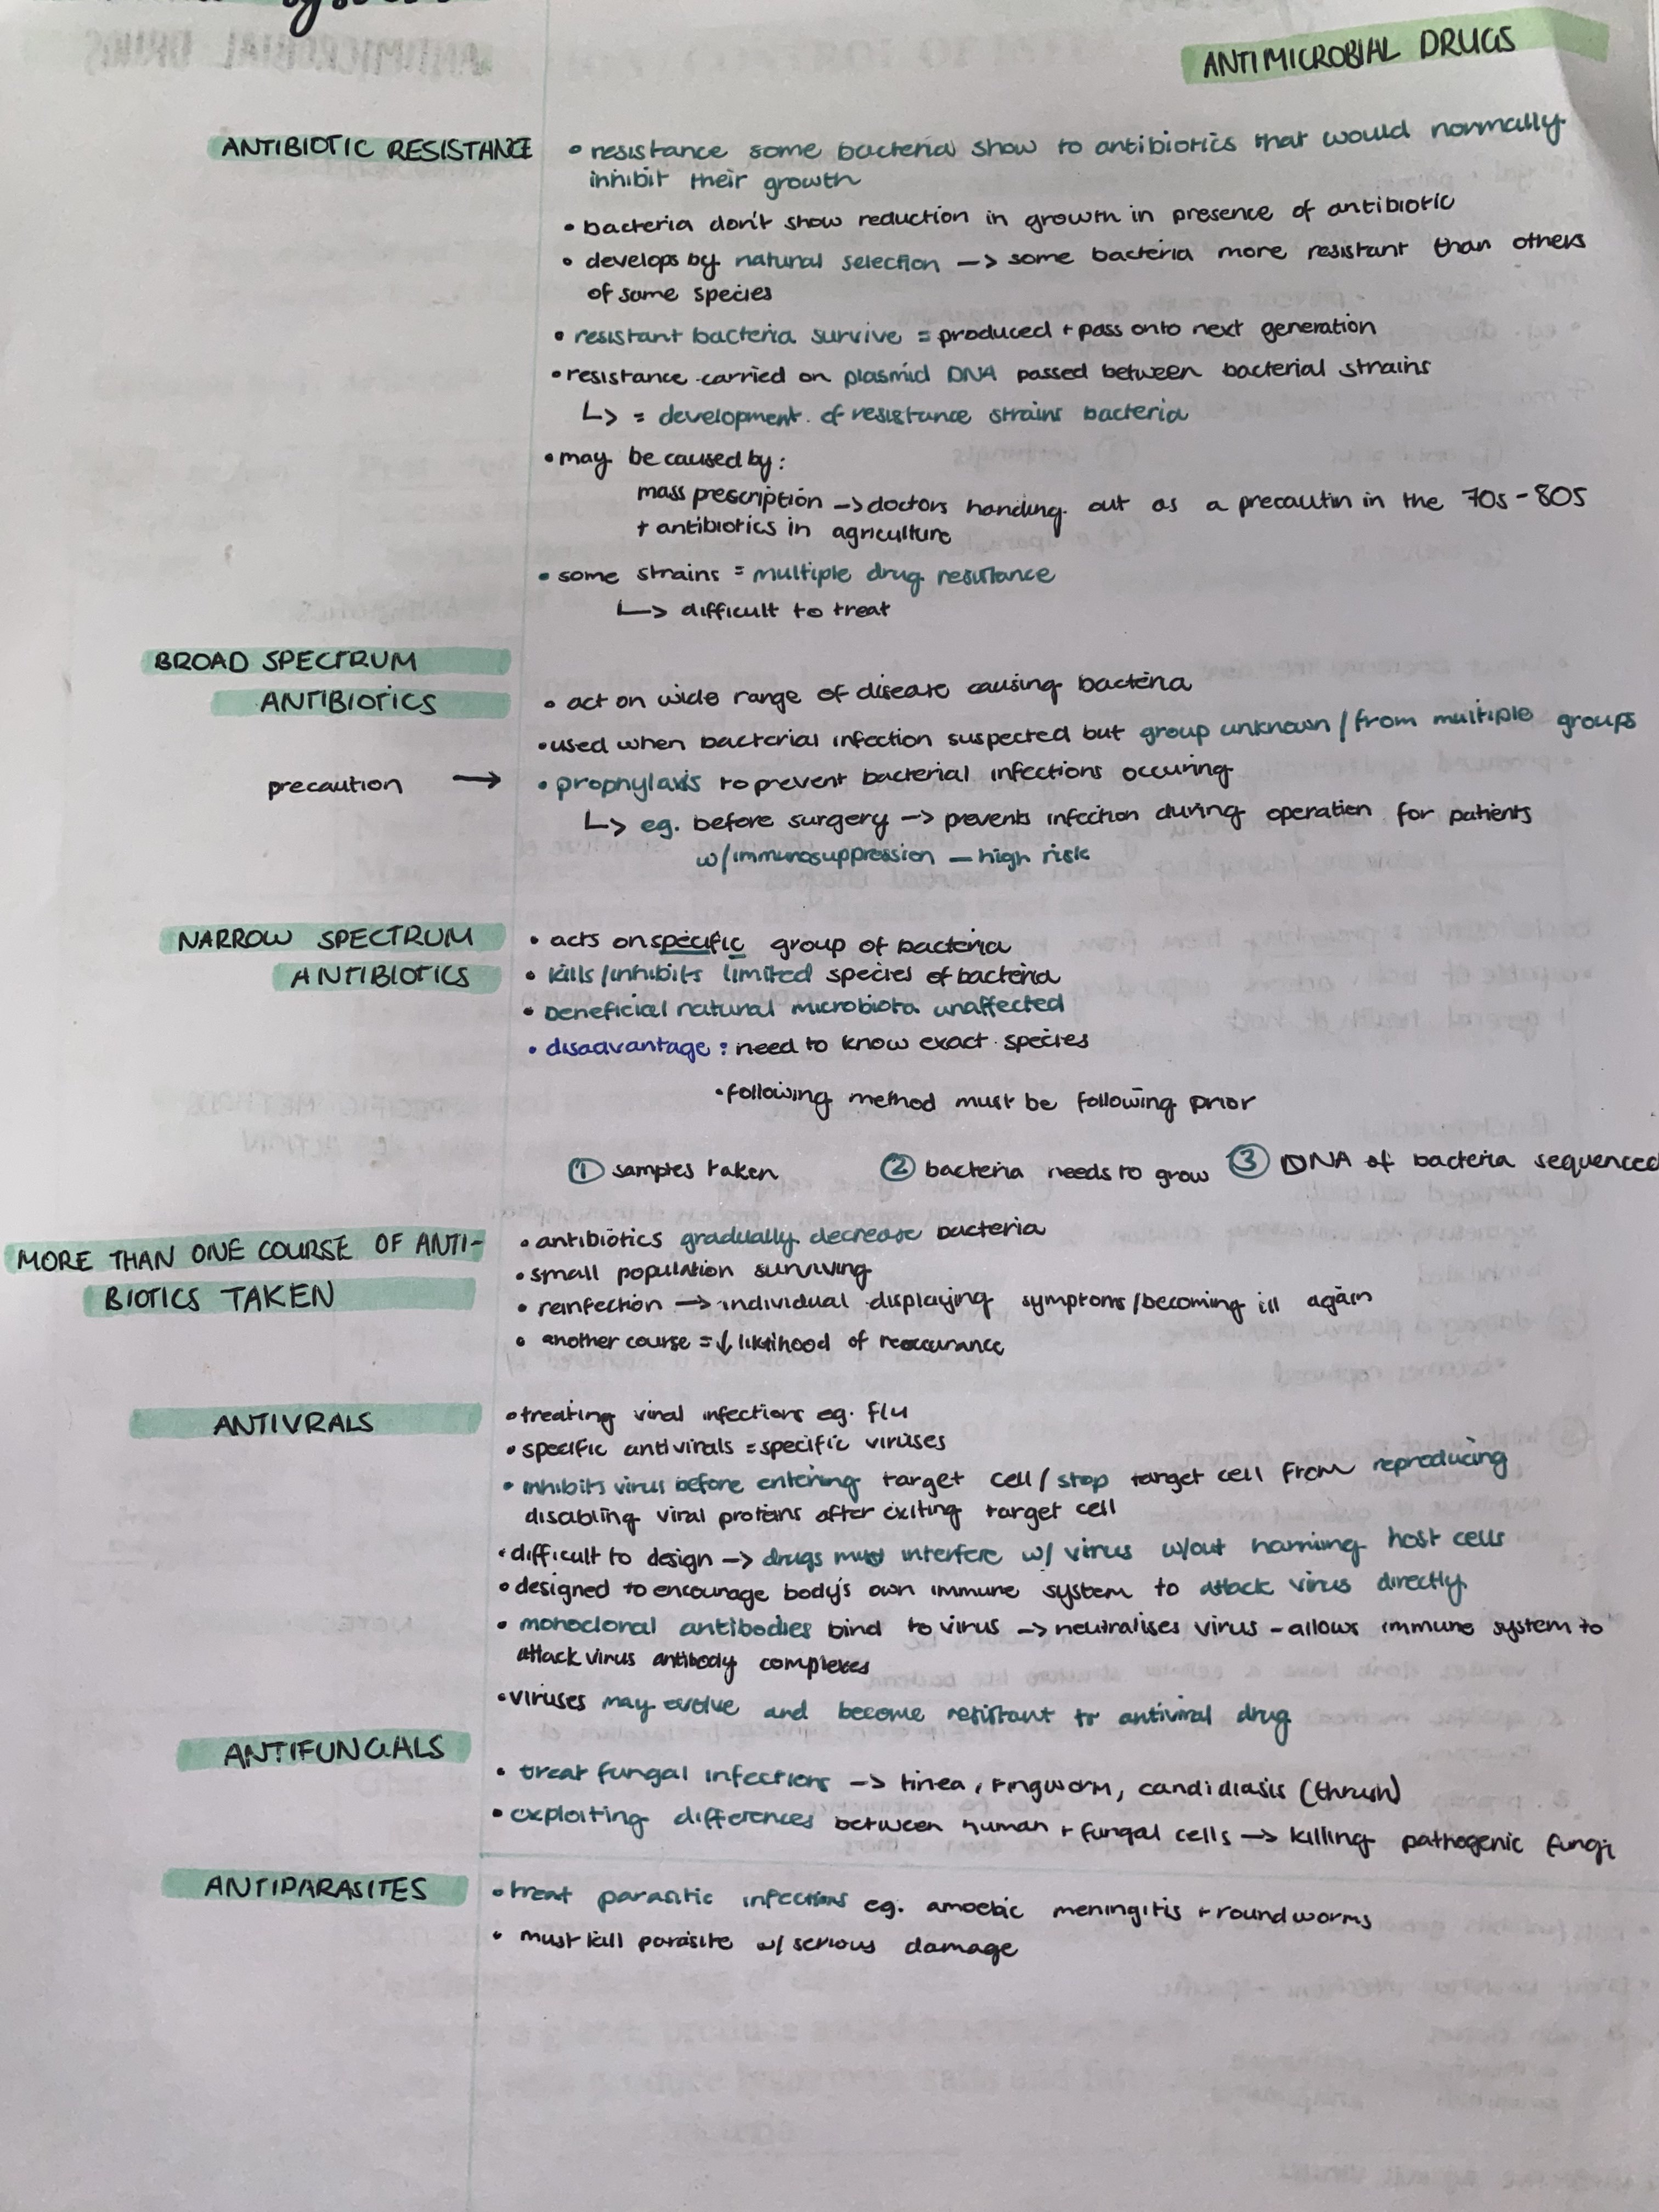 ANTIMICROBIAL DRUGS
ANTIBIOTIC RESISTANCE
• resistance some bacteria show to antibiotics that would normally
inhibit their growth
• bacteria don't show reduction in growth in presence of antibiotic
• develops by natural selection —> some bacteria more resistant than others
of same species
• resistant bacteria survive = produced + pass onto next generation
• resistance carried on plasmid DNA passed between bacterial strains
↳ = development of resistance strains bacteria
• may be caused by:
mass prescription —> doctors handing out as a precautin in the 70s - 80s
+ antibiotics in agriculture
• some strains = multiple drug resistance
↳ difficult to treat
BROAD SPECTRUM
ANTIBIOTICS
• act on wide range of disease causing bacteria
• used when bacterial infection suspected but group unknown / from multiple groups
precaution —>
• prophylaxis to prevent bacterial infections occuring
↳ eg. before surgery —> prevents infection during operation for patients
w/immunosuppression — high risk
NARROW SPECTRUM
ANTIBIOTICS
• acts on specific group of bacteria
• kills/inhibits limited species of bacteria
• beneficial natural microbiota unaffected
• disadvantage : need to know exact species
• following method must be following prior
① samples taken ② bacteria needs to grow ③ DNA of bacteria sequenced
MORE THAN ONE COURSE OF ANTI-
BIOTICS TAKEN
• antibiotics gradually decrease bacteria
• small population surviving
• reinfection —> individual displaying symptoms/becoming ill again
• another course = ↓ likelihood of reoccurance
ANTIVRALS
• treating viral infections eg. flu
• specific antivirals = specific viruses
• inhibits virus before entering target cell / stop target cell from reproducing
disabling viral proteins after exiting target cell
• difficult to design —> drugs must interfere w/ virus w/out harming host cells
• designed to encourage body's own immune system to attack virus directly
• monoclonal antibodies bind to virus —> neutralises virus - allows immune system to
attack virus antibody complexes
• viruses may evolve and become resistant to antiviral drug
ANTIFUNGALS
• treat fungal infections —> tinea, ringworm, candidiasis (thrush)
• exploiting differences between human + fungal cells —> killing pathogenic fungi
ANTIPARASITES
• treat parasitic infections eg. amoebic meningitis + roundworms
• must kill parasite w/ serious damage